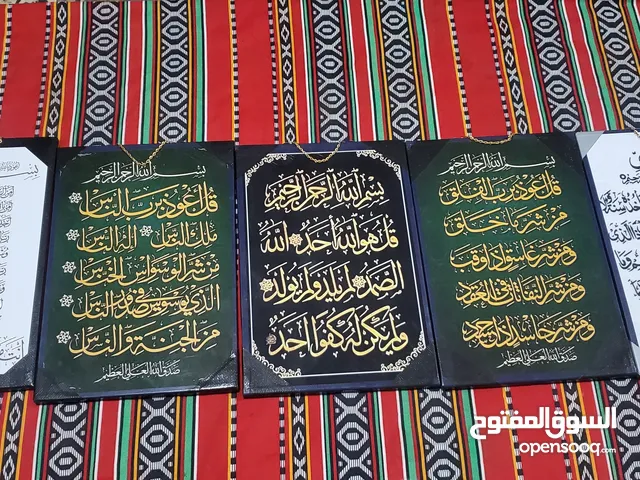 بسم الله الرحمن الرحيم
قل أعوذ برب الفلق
من شر ما خلق
ومن شر غاسق إذا وقب
ومن شر النفاثات في العقد
ومن شر حاسد إذا حسد
صدق الله العلي العظيم
بسم الله الرحمن الرحيم
قل هو الله أحد الله
الصمد لم يلد ولم يولد
ولم يكن له كفوا أحد
بسم الله الرحمن الرحيم
قل أعوذ برب الناس
ملك الناس إله الناس
من شر الوسواس الخناس
الذي يوسوس في صدور الناس
من الجنة والناس
صدق الله العلي العظيم
السوق المفتوح
opensooq.com